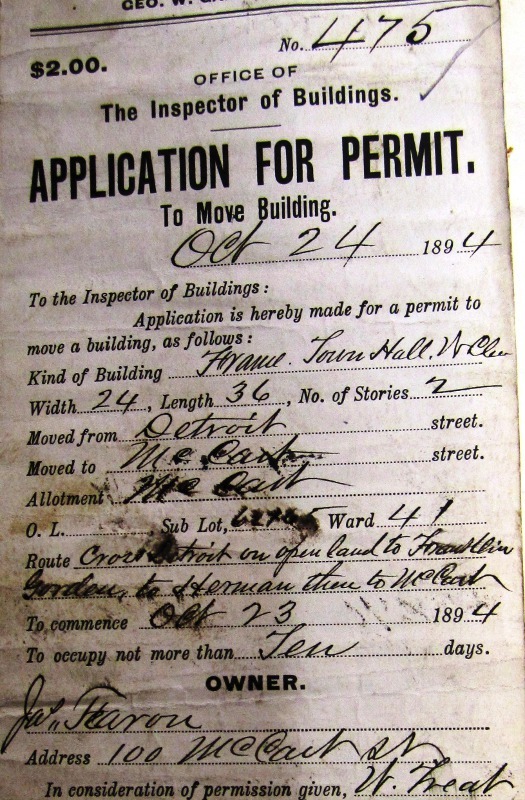 GEO. W.
No. 475
$2.00.
OFFICE OF
The Inspector of Buildings.
APPLICATION FOR PERMIT.
To Move Building.
Oct 24 1894
To the Inspector of Buildings:
Application is hereby made for a permit to
move a building, as follows:
Kind of Building Frame Town Hall. W Clev
Width 24, Length 36, No. of Stories 2
Moved from Detroit street.
Moved to McCart street.
Allotment McCart
O. L. Sub Lot, Ward 41
Route Cross Detroit on open land to Franklin
Gordon, to Herman then to McCart
To commence Oct 23 1894
To occupy not more than Ten days.
OWNER.
Jas. Fearon
Address 100 McCart St
In consideration of permission given, W. Treat